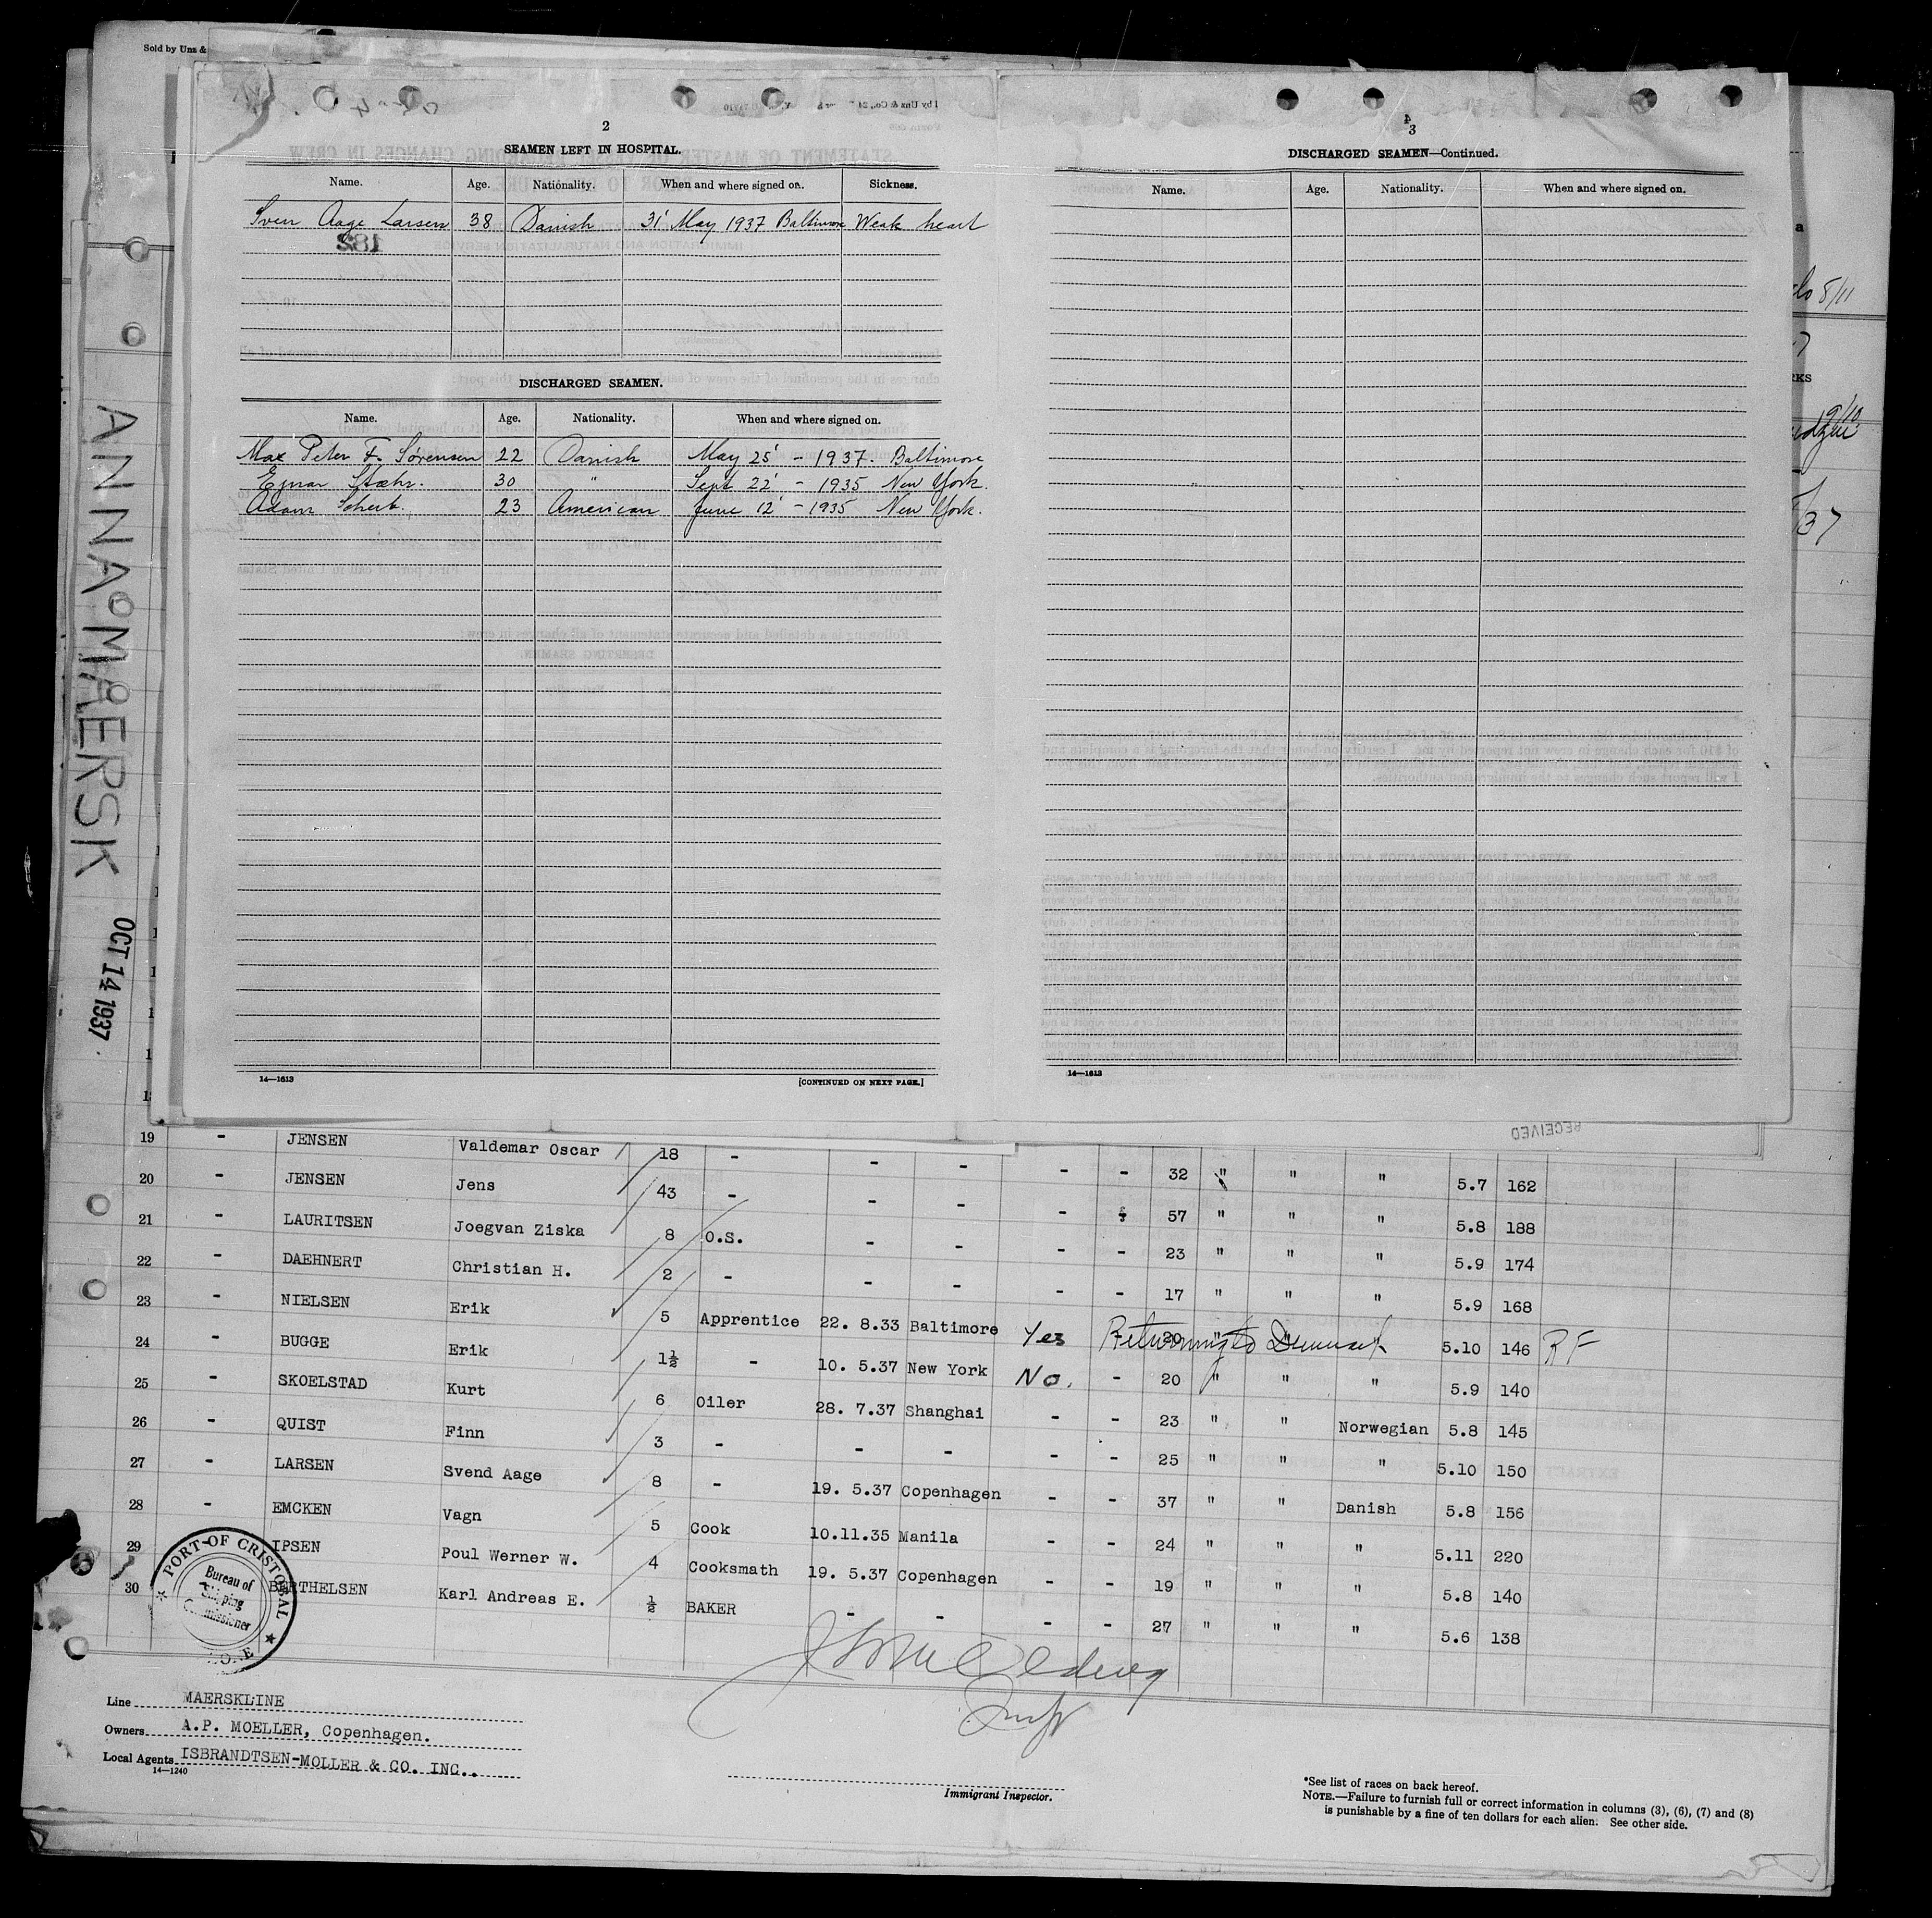 Sold by Unz &
2
SEAMEN LEFT IN HOSPITAL.
Name. Age. Nationality. When and where signed on. Sickness.
Sven Aage Larsen 38 Danish 31' May 1937 Baltimore Weak heart
182
DISCHARGED SEAMEN.
Name. Age. Nationality. When and where signed on.
Max Peter F. Sørensen 22 Danish May 25' - 1937. Baltimore
Ejnar Stæhr. 30 " Sept 22' - 1935 New York.
Adam Schert. 23 American June 12' - 1935 New York.
14—1613 [CONTINUED ON NEXT PAGE.]
4
3
DISCHARGED SEAMEN—Continued.
Name. Age. Nationality. When and where signed on.
14—1613
ANNA MÆRSK
OCT 14 1937
RECEIVED
19 - JENSEN Valdemar Oscar 18 - - - - - 32 " " " 5.7 162
20 - JENSEN Jens 43 - - - - 57 " " " 5.8 188
21 - LAURITSEN Joegvan Ziska 8 O.S. - - - - 23 " " " 5.9 174
22 - DAEHNERT Christian H. 2 - - - - - 17 " " " 5.9 168
23 - NIELSEN Erik 5 Apprentice 22. 8.33 Baltimore Yes Returning to Denmark 20 " " 5.10 146 RF
24 - BUGGE Erik 1½ - 10. 5.37 New York No. - 20 " " " 5.9 140
25 - SKOELSTAD Kurt 6 Oiler 28. 7.37 Shanghai - - 23 " " Norwegian 5.8 145
26 - QUIST Finn 3 - - - - - 25 " " " 5.10 150
27 - LARSEN Svend Aage 8 - 19. 5.37 Copenhagen - - 37 " " Danish 5.8 156
28 - EMCKEN Vagn 5 Cook 10.11.35 Manila - - 24 " " " 5.11 220
29 - IPSEN Poul Werner W. 4 Cooksmath 19. 5.37 Copenhagen - - 19 " " " 5.8 140
30 BERTHELSEN Karl Andreas E. ½ BAKER - - - - 27 " " " 5.6 138
PORT OF CRISTOBAL
Bureau of
Shipping
Commissioner
Line MAERSKLINE
Owners A.P. MOELLER, Copenhagen.
Local Agents ISBRANDTSEN-MOLLER & CO. INC..
14—1240
Immigrant Inspector.
*See list of races on back hereof.
NOTE.—Failure to furnish full or correct information in columns (3), (6), (7) and (8)
is punishable by a fine of ten dollars for each alien. See other side.